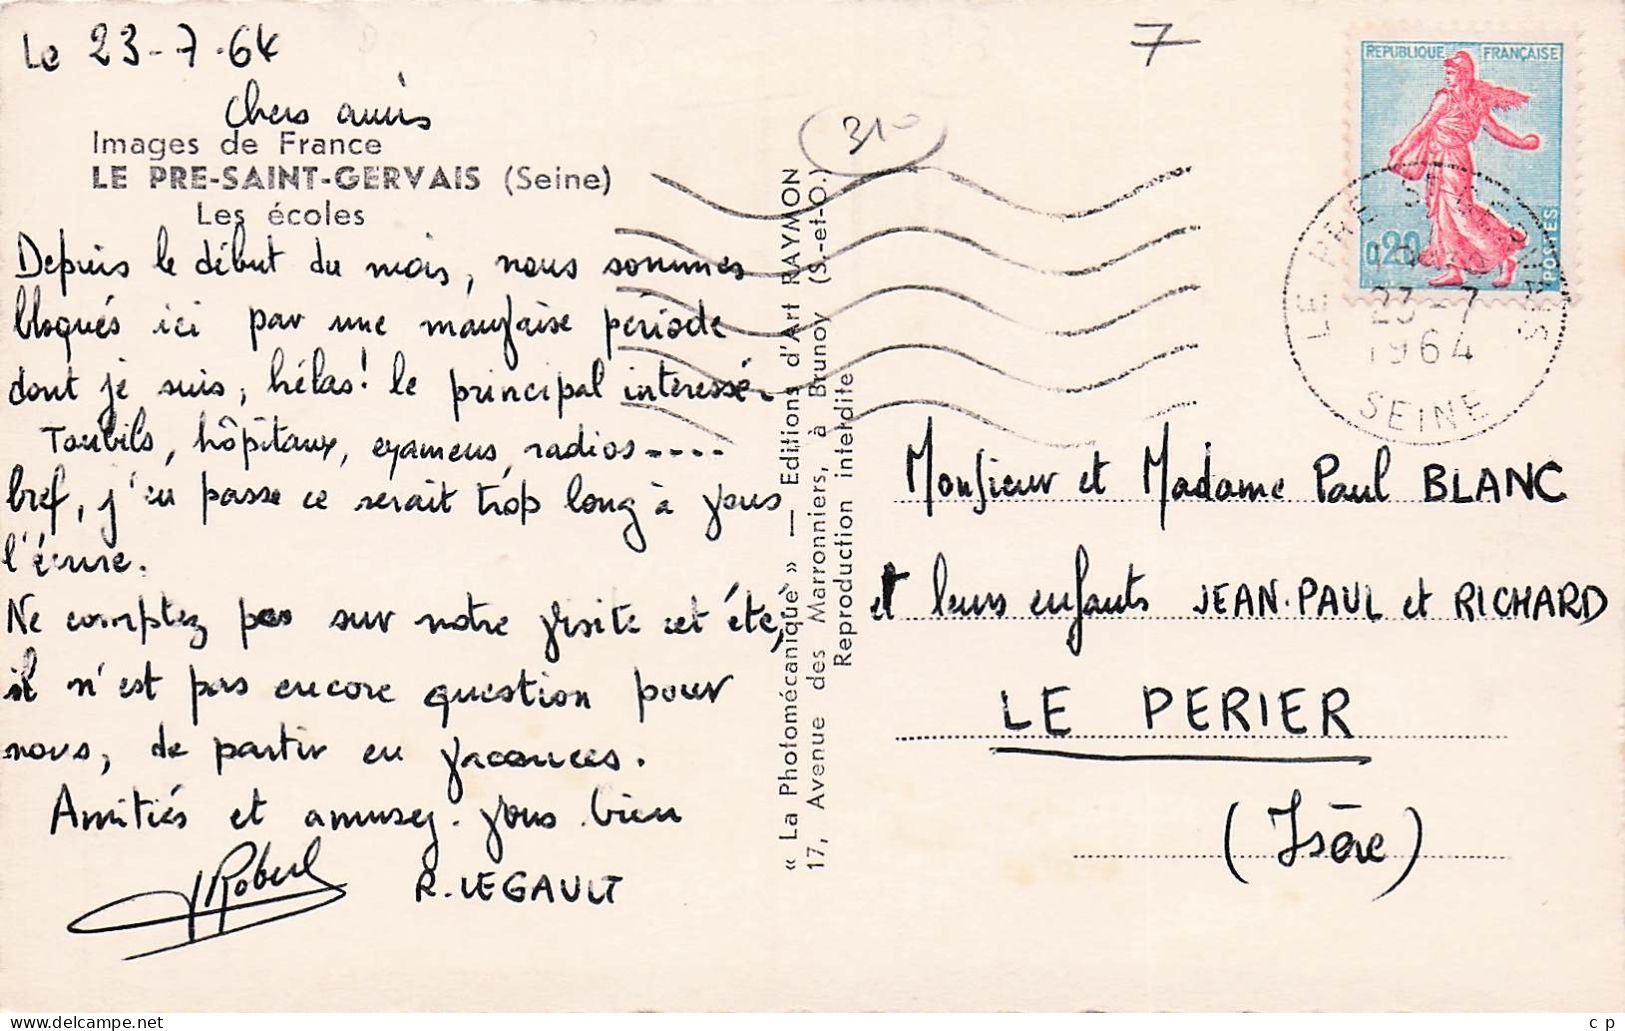 Le 23-7-64
Chers amis
Images de France
LE PRE-SAINT-GERVAIS (Seine)
Les écoles
Depuis le début du mois, nous sommes
bloqués ici par une mauvaise période
dont je suis, hélas! le principal intéressé.
Toubibs, hôpitaux, examens, radios----
bref, j'en passe ce serait trop long à vous
l'écrire.
Ne comptez pas sur notre visite cet été,
il n'est pas encore question pour
nous, de partir en vacances.
Amitiés et amusez-vous bien
Robert
R. LEGAULT
« La Photomécanique » — Editions d'Art RAYMON
17, Avenue des Marronniers, à Brunoy (S.-et-O.)
Reproduction interdite
310
7
REPUBLIQUE FRANÇAISE
0,20
POSTES
LE PRE ST GERVAIS
23-7
1964
SEINE
Monsieur et Madame Paul BLANC
et leurs enfants JEAN-PAUL et RICHARD
LE PERIER
(Isère)
c p